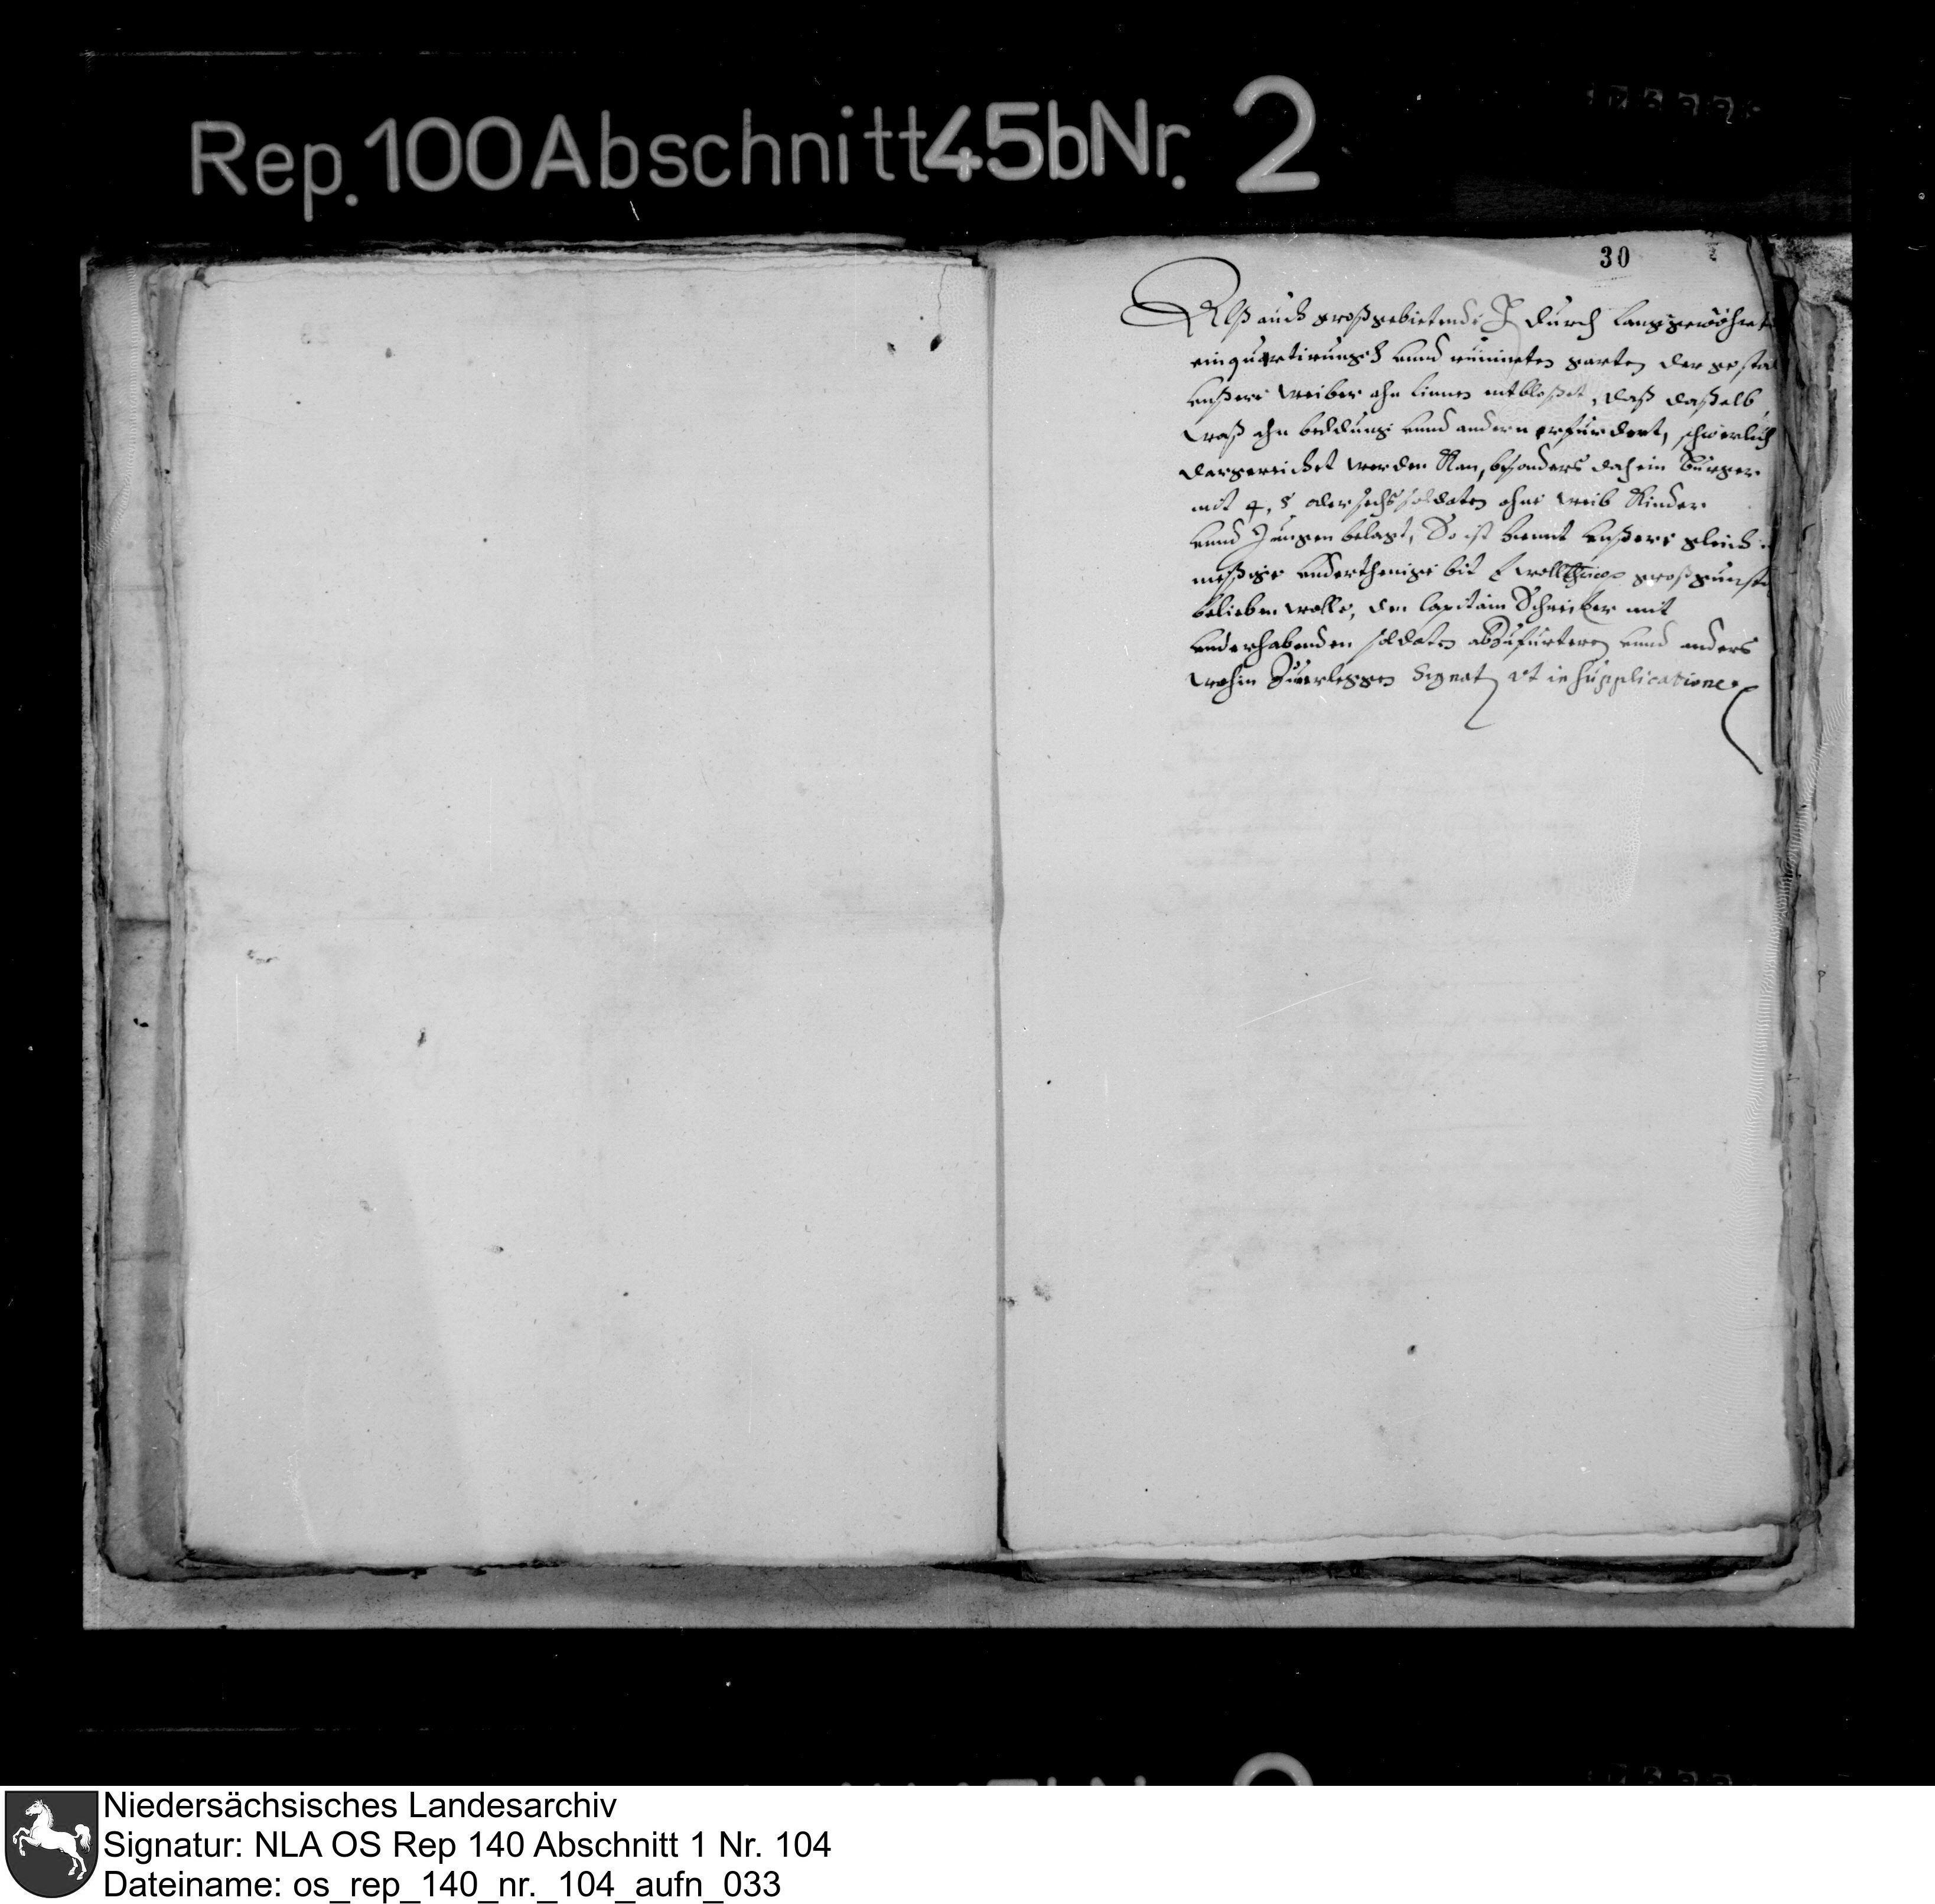 Rep. 100 Abschnitt 45b Nr. 2
30
Alß auch großgebietende durch langgewöhrete
einquartirungh unnd ruinirten garten der gestal
unßere weiber ahn linnen entbloßet, daß daßelb
waß ahn beddung unnd andern erfurdert, schwerlich
dargereichet werden Kan, besonders dah ein Burger
mit 4, 5 oder sechs soldaten ohne weib Kinder
unnd Jungen belagt, So ist hiemit unßere gleich
meßige underthenige bit E woll großgunst
belieben wolle, den Capitain Schneiker mit
underhabenden soldaten abzufurteren unnd anders
wohin zuverleggen Signat ut in supplicatione
Niedersächsisches Landesarchiv
Signatur: NLA OS Rep 140 Abschnitt 1 Nr. 104
Dateiname: os_rep_140_nr._104_aufn_033